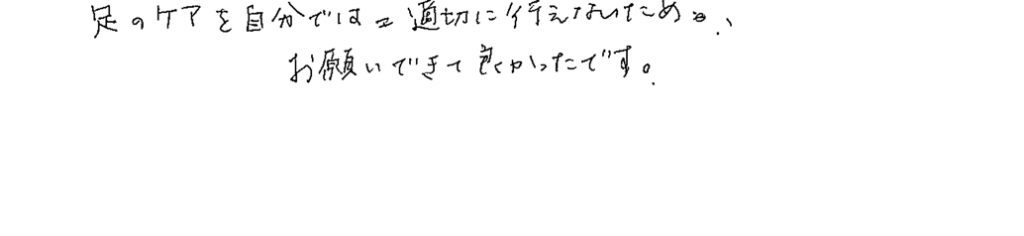 足のケアを自分では適切に行えないため、
お願いできて良かったです。